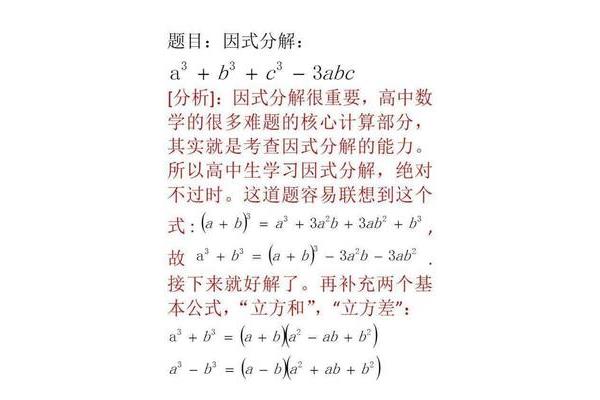 题目：因式分解：
a³ + b³ + c³ − 3abc
[分析]：因式分解很重要，高中数
学的很多难题的核心计算部分，
其实就是考查因式分解的能力。
所以高中生学习因式分解，绝对
不过时。这道题容易联想到这个
式：(a + b)³ = a³ + 3a²b + 3ab² + b³，
故 a³ + b³ = (a + b)³ − 3a²b − 3ab² .
接下来就好解了。再补充两个基
本公式，“立方和”，“立方差”：
a³ + b³ = (a + b)(a² − ab + b²)
a³ − b³ = (a − b)(a² + ab + b²)